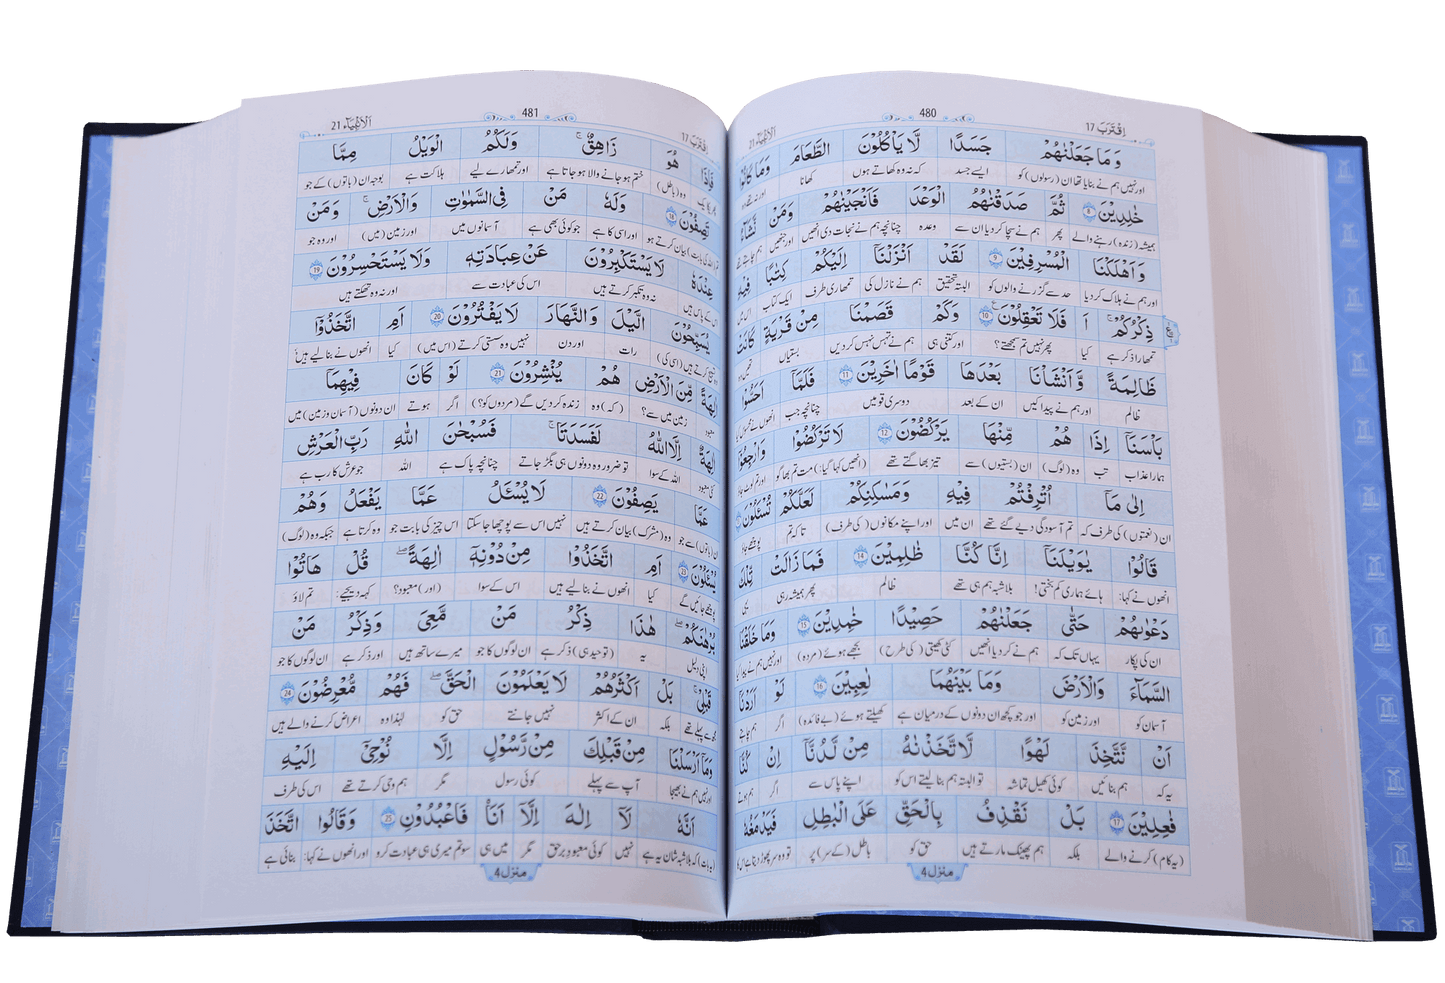 اِقْتَرَبَ 17
480
اَلْاَنْۢبِيَآء 21
وَمَا جَعَلْنٰهُمْ جَسَدًا لَّا يَاْكُلُوْنَ الطَّعَامَ وَمَا كَانُوْا
اور نہیں ہم نے بنایا تھا ان (رسولوں) کو ایسے جسد کہ نہ وہ کھاتے ہوں کھانا اور نہ تھے وہ
خٰلِدِيْنَ 8 ثُمَّ صَدَقْنٰهُمُ الْوَعْدَ فَاَنْجَيْنٰهُمْ وَمَنْ نَّشَآءُ
ہمیشہ (زندہ) رہنے والے پھر ہم نے سچا کر دیا ان سے وعدہ چنانچہ ہم نے نجات دی انھیں اور جنھیں ہم چاہتے تھے
وَاَهْلَكْنَا الْمُسْرِفِيْنَ 9 لَقَدْ اَنْزَلْنَآ اِلَيْكُمْ كِتٰبًا فِيْهِ
اور ہم نے ہلاک کر دیا حد سے گزرنے والوں کو البتہ تحقیق ہم نے نازل کی تمھاری طرف ایک کتاب اس میں
ذِكْرُكُمْ ۚ اَ فَلَا تَعْقِلُوْنَ 10 وَكَمْ قَصَمْنَا مِنْ قَرْيَةٍ كَانَتْ
تمھارا ذکر ہے کیا پھر نہیں تم سمجھتے؟ اور کتنی ہی ہم نے تہس نہس کر دیں بستیاں
ظَالِمَةً وَّاَنْشَاْنَا بَعْدَهَا قَوْمًا اٰخَرِيْنَ 11 فَلَمَّآ اَحَسُّوْا
ظالم اور ہم نے پیدا کیں ان کے بعد دوسری قومیں چنانچہ جب
بَاْسَنَآ اِذَا هُمْ مِّنْهَا يَرْكُضُوْنَ 12 لَا تَرْكُضُوْا وَارْجِعُوْٓا
ہمارا عذاب تب وہ (لوگ) ان (بستیوں) سے تیز بھاگتے تھے (انھیں کہا گیا:) مت تم بھاگو اور تم لوٹ جاؤ
اِلٰى مَآ اُتْرِفْتُمْ فِيْهِ وَمَسٰكِنِكُمْ لَعَلَّكُمْ تُسْئَلُوْنَ
ان (نعمتوں) کی طرف کہ تم آسودگی دیے گئے تھے ان میں اور اپنے مکانوں (کی طرف) تاکہ تم پوچھے جاؤ
قَالُوْا يٰوَيْلَنَآ اِنَّا كُنَّا ظٰلِمِيْنَ 14 فَمَا زَالَتْ تِّلْكَ
انھوں نے کہا: ہائے ہماری کم بختی! بلاشبہ ہم ہی تھے ظالم پھر ہمیشہ رہی یہی
دَعْوٰىهُمْ حَتّٰى جَعَلْنٰهُمْ حَصِيْدًا خٰمِدِيْنَ 15 وَمَا خَلَقْنَا
ان کی پکار یہاں تک کہ ہم نے کر دیا انھیں کٹی کھیتی (کی طرح) بجھے ہوئے (مردہ) اور نہیں ہم نے پیدا کیا
السَّمَآءَ وَالْاَرْضَ وَمَا بَيْنَهُمَا لٰعِبِيْنَ 16 لَوْ اَرَدْنَآ
آسمان کو اور زمین کو اور جو کچھ ان دونوں کے درمیان ہے کھیلتے ہوئے (بے فائدہ) اگر ہم چاہتے
اَنْ نَّتَّخِذَ لَهْوًا لَّاتَّخَذْنٰهُ مِنْ لَّدُنَّآ اِنْ كُنَّا
یہ کہ ہم بنائیں کوئی کھیل تماشہ تو البتہ ہم بنا لیتے اس کو اپنے پاس سے اگر ہم ہوتے
فٰعِلِيْنَ 17 بَلْ نَقْذِفُ بِالْحَقِّ عَلَى الْبَاطِلِ فَيَدْمَغُهٗ
(یہ کام) کرنے والے بلکہ ہم پھینک مارتے ہیں حق کو باطل (کے سر) پر تو وہ سر پھوڑ دیتا ہے اس کا
منزل 4
اِقْتَرَبَ 17
481
اَلْاَنْۢبِيَآء 21
فَاِذَا هُوَ زَاهِقٌ ۚ وَلَكُمُ الْوَيْلُ مِمَّا
وہ (باطل) ختم ہو جانے والا ہو جاتا ہے اور تمھارے لیے ہلاکت ہے بوجہ ان (باتوں) کے جو
تَصِفُوْنَ 18 وَلَهٗ مَنْ فِى السَّمٰوٰتِ وَالْاَرْضِ ۚ وَمَنْ
تم (اللہ کی بابت) بیان کرتے ہو اور اسی کا ہے جو کوئی بھی ہے آسمانوں میں اور زمین (میں) اور وہ جو
عِنْدَهٗ لَا يَسْتَكْبِرُوْنَ عَنْ عِبَادَتِهٖ وَلَا يَسْتَحْسِرُوْنَ 19
اس کے پاس ہیں نہ وہ تکبر کرتے ہیں اس کی عبادت سے اور نہ وہ تھکتے ہیں
يُسَبِّحُوْنَ الَّيْلَ وَالنَّهَارَ لَا يَفْتُرُوْنَ 20 اَمِ اتَّخَذُوْٓا
تسبیح کرتے ہیں (اس کی) رات اور دن نہیں وہ سستی کرتے (اس میں) کیا انھوں نے بنا لیے ہیں
اٰلِهَةً مِّنَ الْاَرْضِ هُمْ يُنْشِرُوْنَ 21 لَوْ كَانَ فِيْهِمَآ
معبود زمین میں سے؟ (کہ) وہ زندہ کر دیں گے (مردوں کو؟) اگر ہوتے ان دونوں (آسمان و زمین) میں
اٰلِهَةٌ اِلَّا اللّٰهُ لَفَسَدَتَا ۚ فَسُبْحٰنَ اللّٰهِ رَبِّ الْعَرْشِ
کئی معبود اللہ کے سوا تو ضرور وہ دونوں ہی بگڑ جاتے چنانچہ پاک ہے اللہ جو عرش کا رب ہے
عَمَّا يَصِفُوْنَ 22 لَا يُسْئَلُ عَمَّا يَفْعَلُ وَهُمْ
ان (باتوں) سے جو وہ (مشرک) بیان کرتے ہیں نہیں اس سے پوچھا جا سکتا اس چیز کی بابت جو وہ کرتا ہے جبکہ وہ (لوگ)
يُسْئَلُوْنَ 23 اَمِ اتَّخَذُوْا مِنْ دُوْنِهٖٓ اٰلِهَةً ؕ قُلْ هَاتُوْا
پوچھے جائیں گے کیا انھوں نے بنا لیے ہیں اس کے سوا (اور) معبود؟ کہہ دیجیے: تم لاؤ
بُرْهَانَكُمْ ۚ هٰذَا ذِكْرُ مَنْ مَّعِىَ وَذِكْرُ مَنْ
اپنی دلیل یہ (توحید ہی) ذکر ہے ان لوگوں کا جو میرے ساتھ ہیں اور ذکر ہے ان لوگوں کا جو
قَبْلِىْ ؕ بَلْ اَكْثَرُهُمْ لَا يَعْلَمُوْنَ الْحَقَّ فَهُمْ مُّعْرِضُوْنَ 24
مجھ سے پہلے تھے بلکہ ان کے اکثر نہیں جانتے حق کو لہٰذا وہ اعراض کرنے والے ہیں
وَمَآ اَرْسَلْنَا مِنْ قَبْلِكَ مِنْ رَّسُوْلٍ اِلَّا نُوْحِىْٓ اِلَيْهِ
اور نہیں ہم نے بھیجا آپ سے پہلے کوئی رسول مگر ہم وحی کرتے تھے اس کی طرف
اَنَّهٗ لَآ اِلٰهَ اِلَّآ اَنَا فَاعْبُدُوْنِ 25 وَقَالُوا اتَّخَذَ
(یہ بات) کہ بلاشبہ شان یہ ہے نہیں کوئی معبود برحق مگر میں ہی سو تم میری ہی عبادت کرو اور انھوں نے کہا: بنائی ہے
منزل 4